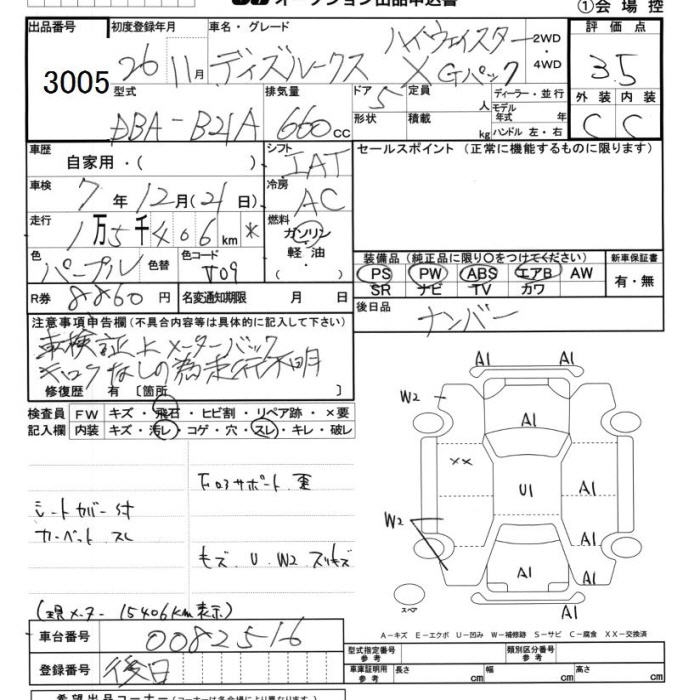 オークション出品申込書 ①会場控
出品番号 初度登録年月 車名・グレード 評価点
3005 26 11月 ディズルークス ハイウェイスター XGパック 2WD ・ 4WD 3.5
型式 排気量 ドア 5 定員 人 ディーラー・並行 外装 内装
DBA-B21A 660cc 形状 積載 kg モデル年式 年 ハンドル 左・右 C C
車歴 自家用・( ) シフト IAT セールスポイント (正常に機能するものに限ります)
車検 7年12月(21日) 冷房 AC
走行 1万5千406km * 燃料 ガソリン
色 パープル 色替 色コード V09 軽油 ・ ( )
装備品 (純正品に限り○をつけてください) 新車保証書
PS PW ABS エアB AW 有・無
SR ナビ TV カワ
R券 8860円 名変通知期限 月 日 後日品 ナンバー
注意事項申告欄(不具合内容等は具体的に記入して下さい)
車検証上メーターバック
キロクなしの為走行不明
修復歴 有 〔箇所 〕
検査員 FW キズ・飛石・ヒビ割・リペア跡・×要
記入欄 内装 キズ・汚レ・コゲ・穴・スレ・キレ・破レ
シートカバー付
カーペット スレ
キズ U W2 スリキズ
(現メーター 15406km表示)
A1
A1
W2
A1
××
U1
A1
W2
A1
A1
A1
A1
スペア
A-キズ E-エクボ U-凹み W-補修跡 S-サビ C-腐食 XX-交換済
車台番号 0082516
登録番号 後日
型式指定番号 参考 類別区分番号 参考
車庫証明用 参考 長さ cm 幅 cm 高さ cm
希望出品コーナー(コーナーは各会場により異なります)